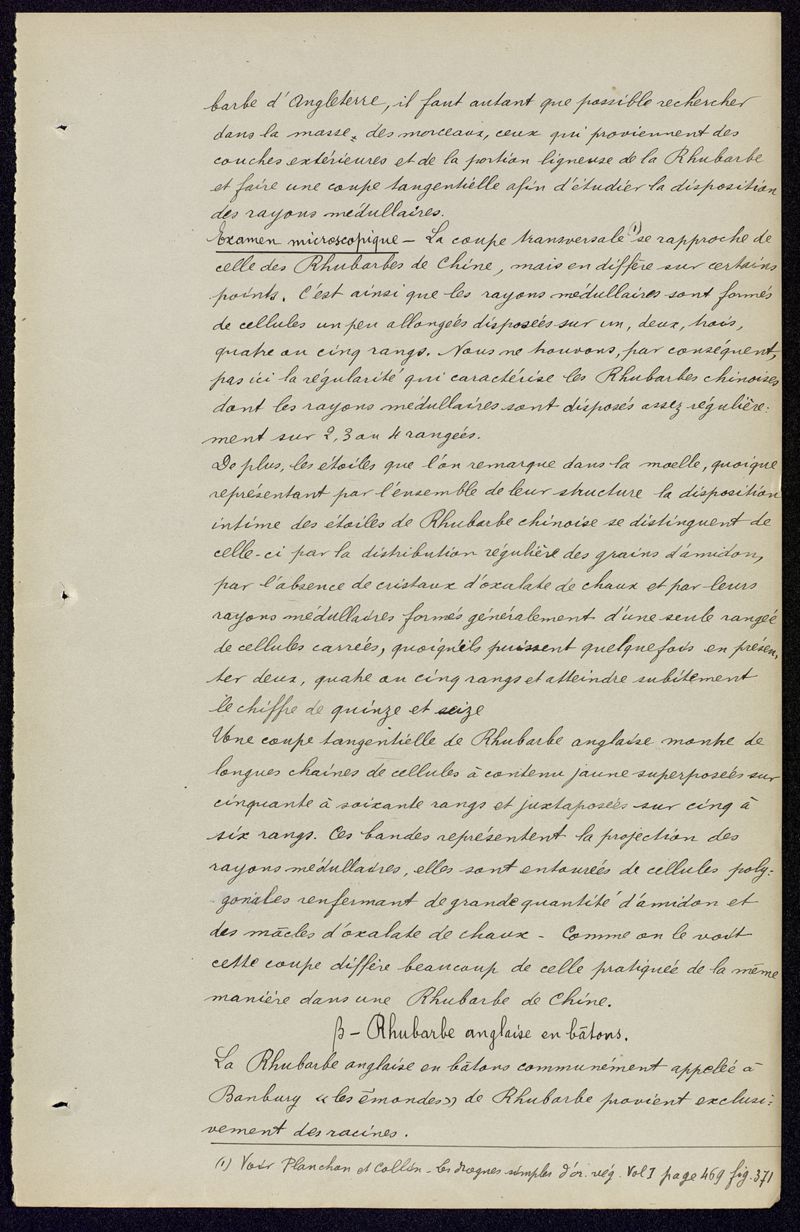 barbe d'Angleterre, il faut autant que possible rechercher
dans la masse, des morceaux, ceux qui proviennent des
couches extérieures et de la portion ligneuse de la Rhubarbe
et faire une coupe tangentielle afin d'étudier la disposition
des rayons médullaires.
Examen microscopique – La coupe transversale (1) se rapproche de
celle des Rhubarbes de Chine, mais en diffère sur certains
points. C'est ainsi que les rayons médullaires sont formés
de cellules un peu allongées disposées sur un, deux, trois,
quatre ou cinq rangs. Nous ne trouvons, par conséquent,
pas ici la régularité qui caractérise les Rhubarbes chinoises
dont les rayons médullaires sont disposés assez régulière-
ment sur 2, 3 ou 4 rangées.
De plus, les étoiles que l'on remarque dans la moelle, quoique
représentant par l'ensemble de leur structure la disposition
intime des étoiles de Rhubarbe chinoise se distinguent de
celle-ci par la distribution régulière des grains d'amidon,
par l'absence de cristaux d'oxalate de chaux et par leurs
rayons médullaires formés généralement d'une seule rangée
de cellules carrées, quoiqu'ils puissent quelquefois en présen-
ter deux, quatre ou cinq rangs et atteindre subitement
le chiffre de quinze et seize
Une coupe tangentielle de Rhubarbe anglaise montre de
longues chaines de cellules à contenu jaune superposées sur
cinquante à soixante rangs et juxtaposées sur cinq à
six rangs. Ces bandes représentent la projection des
rayons médullaires, elles sont entourées de cellules poly-
gonales renfermant de grande quantité d'amidon et
des mâcles d'oxalate de chaux – Comme on le voit
cette coupe diffère beaucoup de celle pratiquée de la même
manière dans une Rhubarbe de Chine.
β – Rhubarbe anglaise en bâtons.
La Rhubarbe anglaise en bâtons communément appelée à
Banbury « les émondes » de Rhubarbe provient exclusi-
vement des racines.
(1) Voir Planchon et Collin – Les drogues simples d'or. vég. Vol I page 469 fig. 371